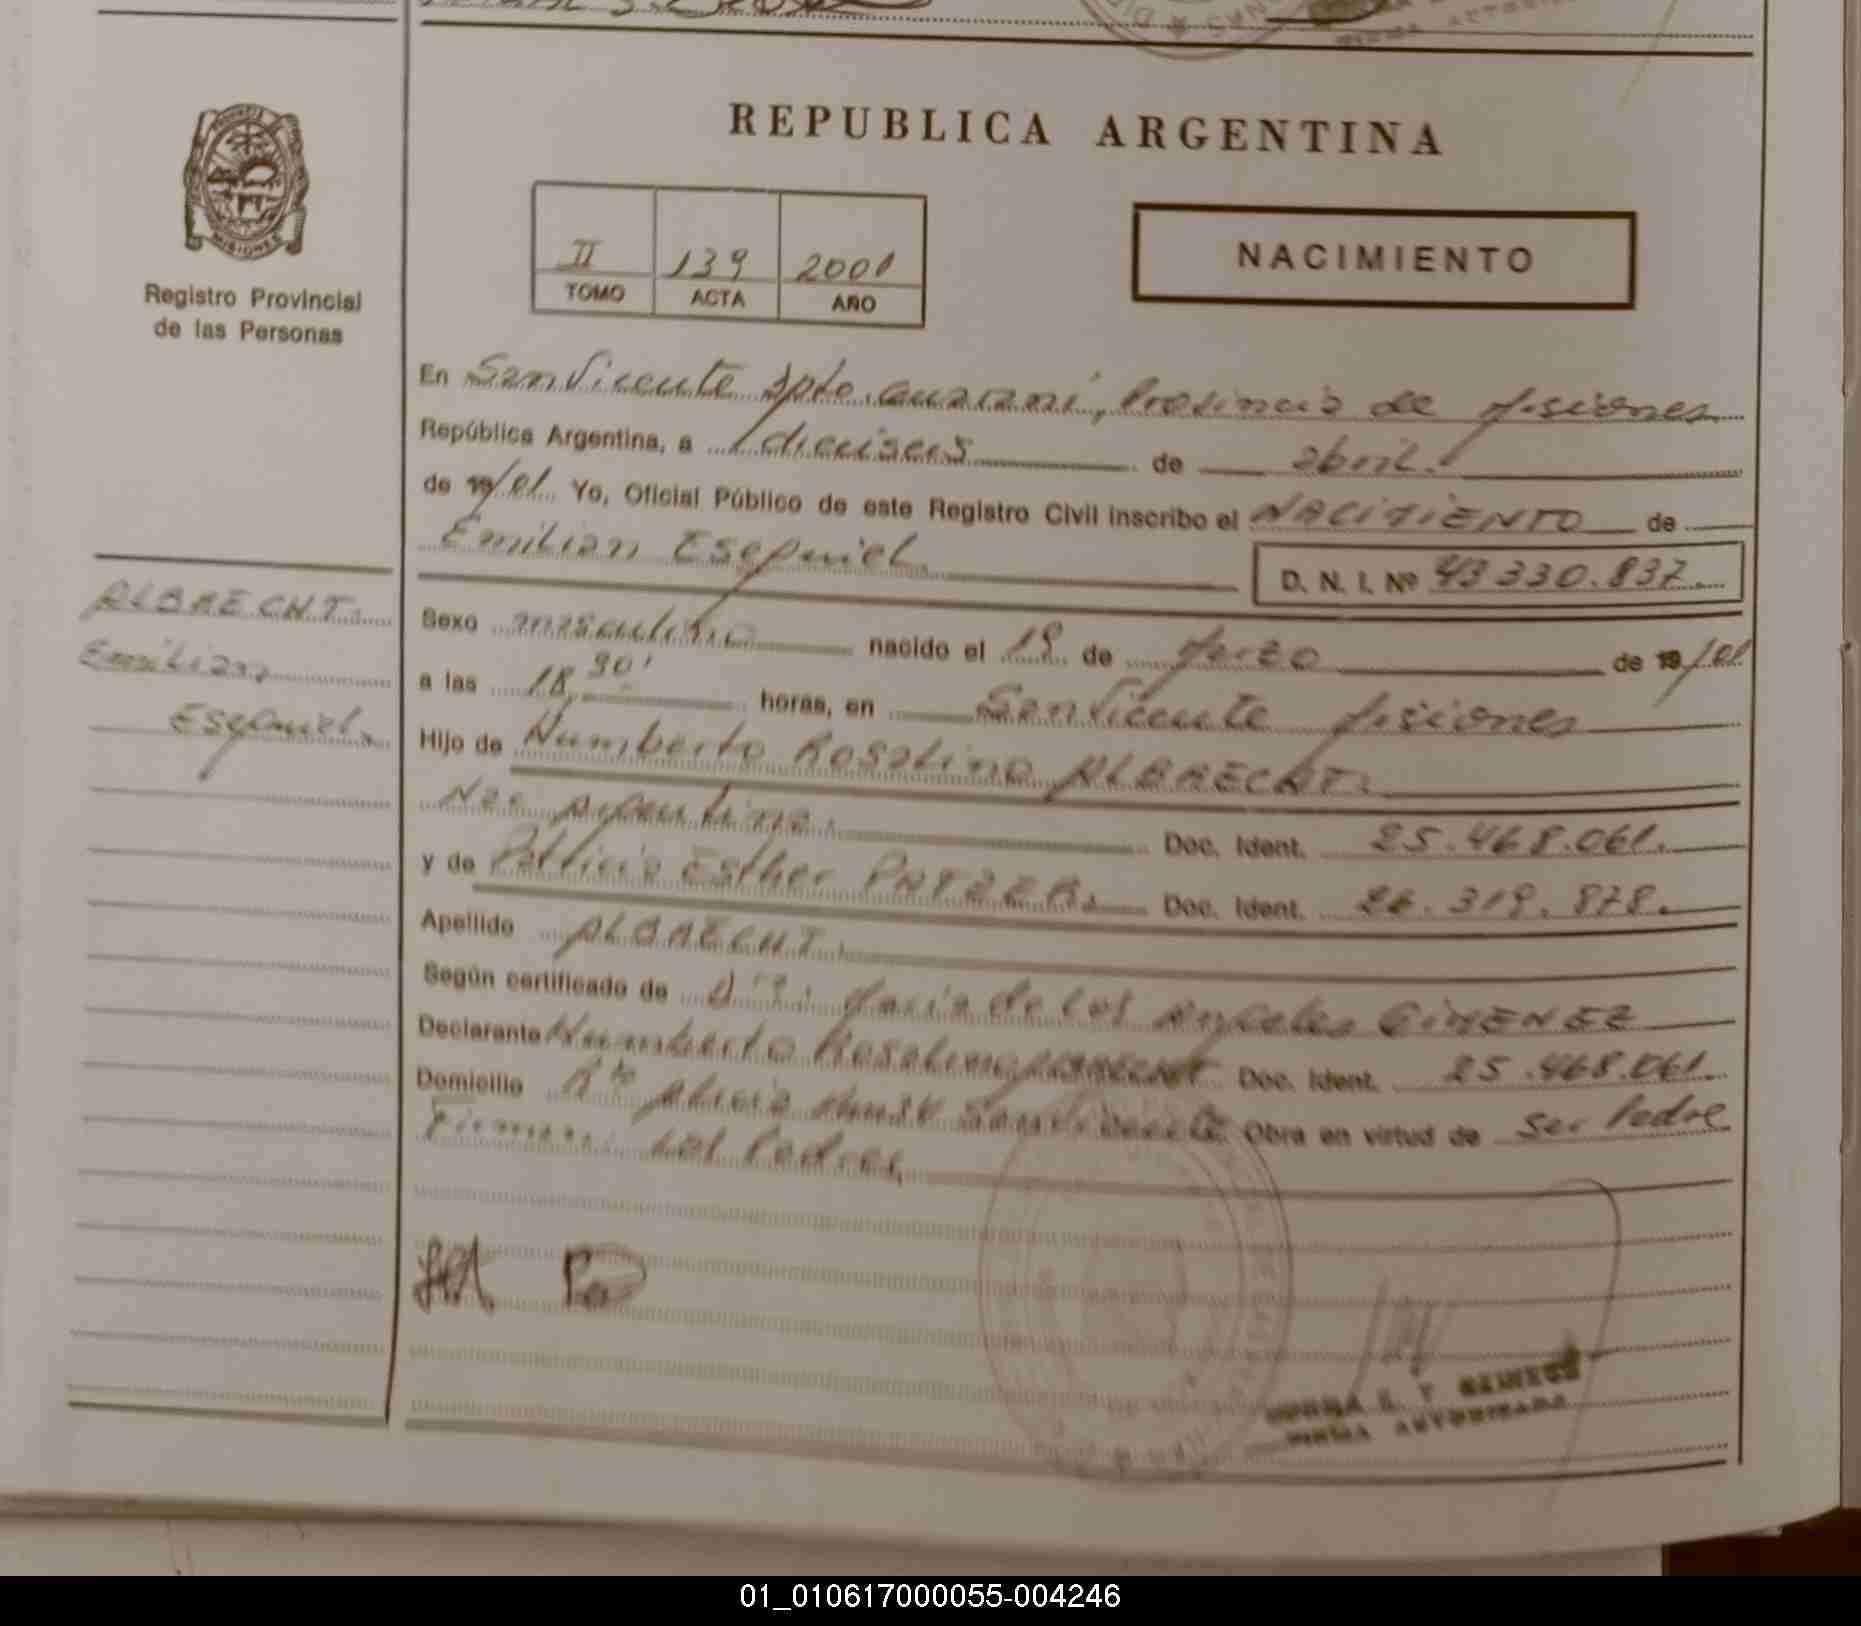 REPUBLICA ARGENTINA
MISIONES
Registro Provincial
de las Personas
II 139 2001
TOMO ACTA AÑO
NACIMIENTO
En San Vicente Dpto. Guaraní, Provincia de Misiones
República Argentina, a dieciseis de abril.
de 19/01 Yo, Oficial Público de este Registro Civil inscribo el NACIMIENTO de
Emilian Esequiel.
D. N. I. Nº 43 330.837.
ALBRECHT.
Emilian,
Esequiel.
Sexo masculino nacido el 19 de Marzo de 19/01
a las 18,30' horas, en San Vicente Misiones
Hijo de Humberto Rosalino ALBRECHT.
Nac. Argentina. Doc. Ident. 25.468.061.
y de Patricia Esther Doc. Ident. 26.319.878.
Apellido ALBRECHT.
Según certificado de Dra. María de los Angeles GIMENEZ
Declarante Humberto Rosalino ALBRECHT Doc. Ident. 25.468.061.
Domicilio San Vicente Obra en virtud de ser Padre
Firman: los Padres.
FIRMA AUTORIZADA
01_010617000055-004246